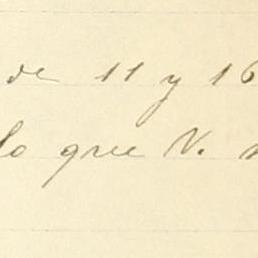 de 11 y 16
lo que V.